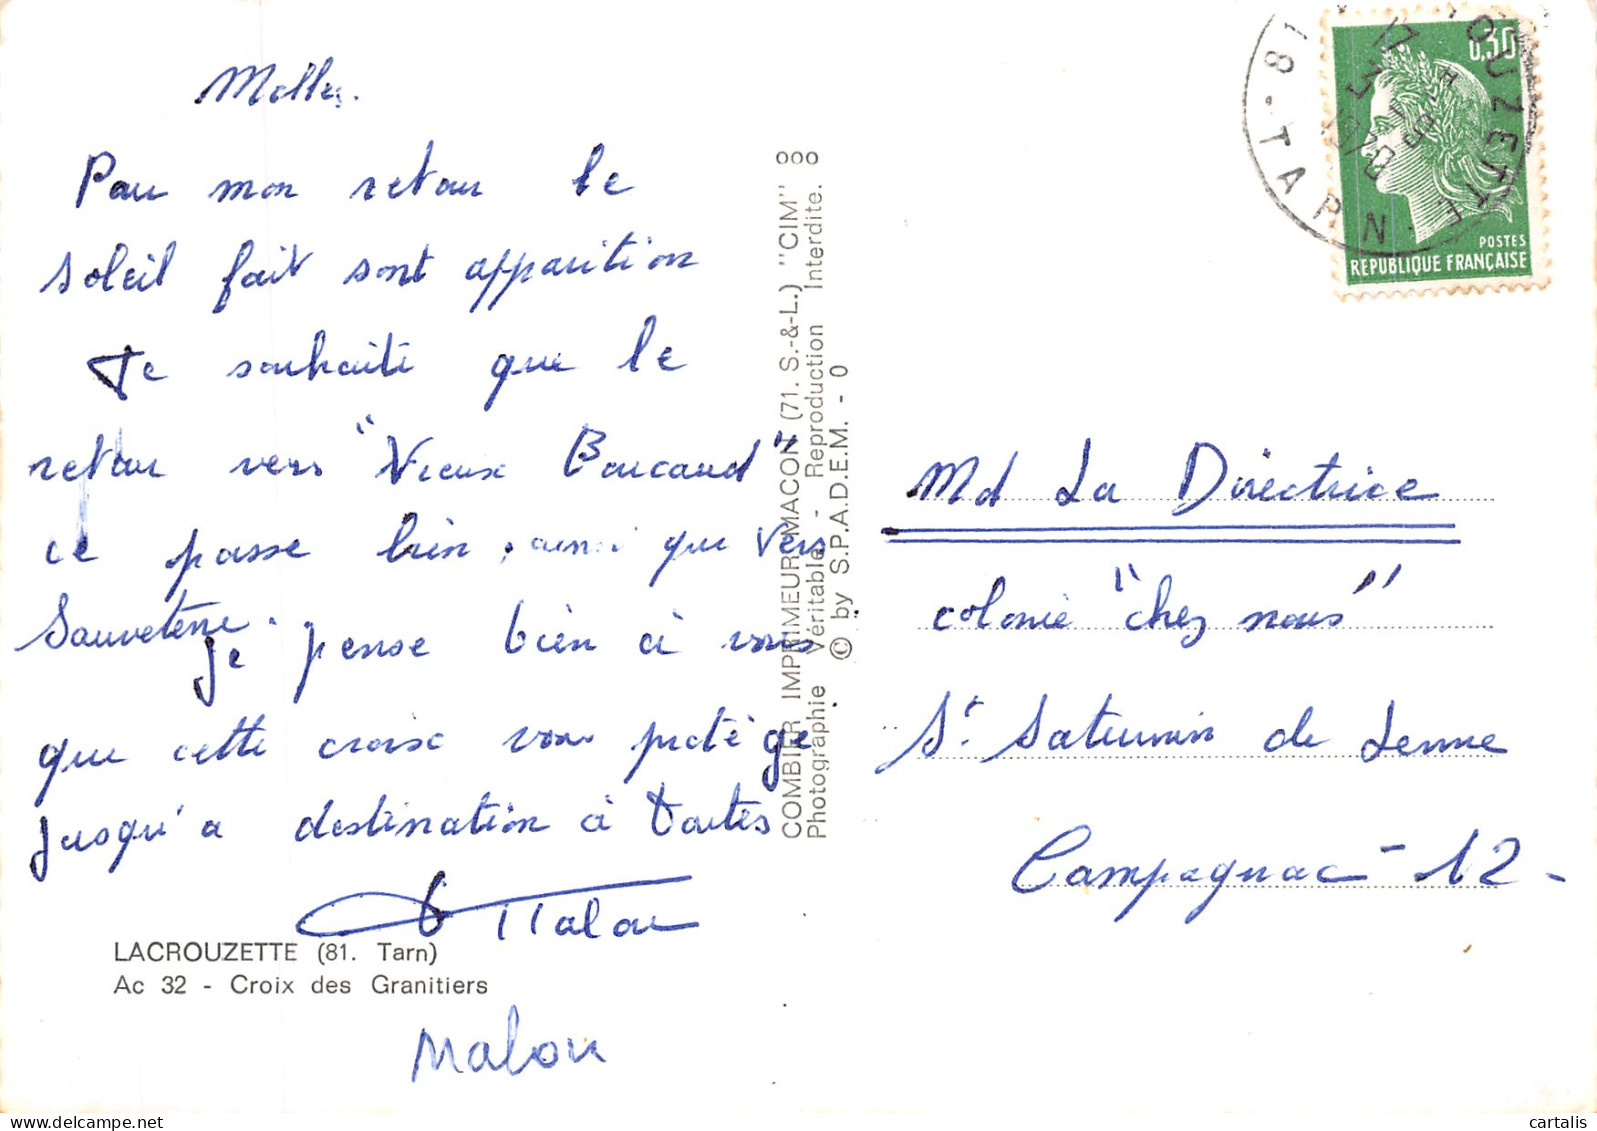 Melles.
Pour mon retour le
soleil fait sont apparition
Je souhaite que le
retour vers "Vieux Boucaud"
ce passe bien, ainsi que vers
Sauveterre.
je pense bien à vous
que cette croix vous protège
jusqu'a destination à toutes
Malou
LACROUZETTE (81. Tarn)
Ac 32 - Croix des Granitiers
Malou
COMBIER IMPRIMEUR MACON (71. S.-&-L.) "CIM"
Photographie Véritable - Reproduction Interdite.
© by S.P.A.D.E.M. - 0
0,30
POSTES
REPUBLIQUE FRANÇAISE
81 - TARN
Md La Directrice
colonie "chez nous"
St Saturnin de Lenne
Campagnac - 12 -
cartalis